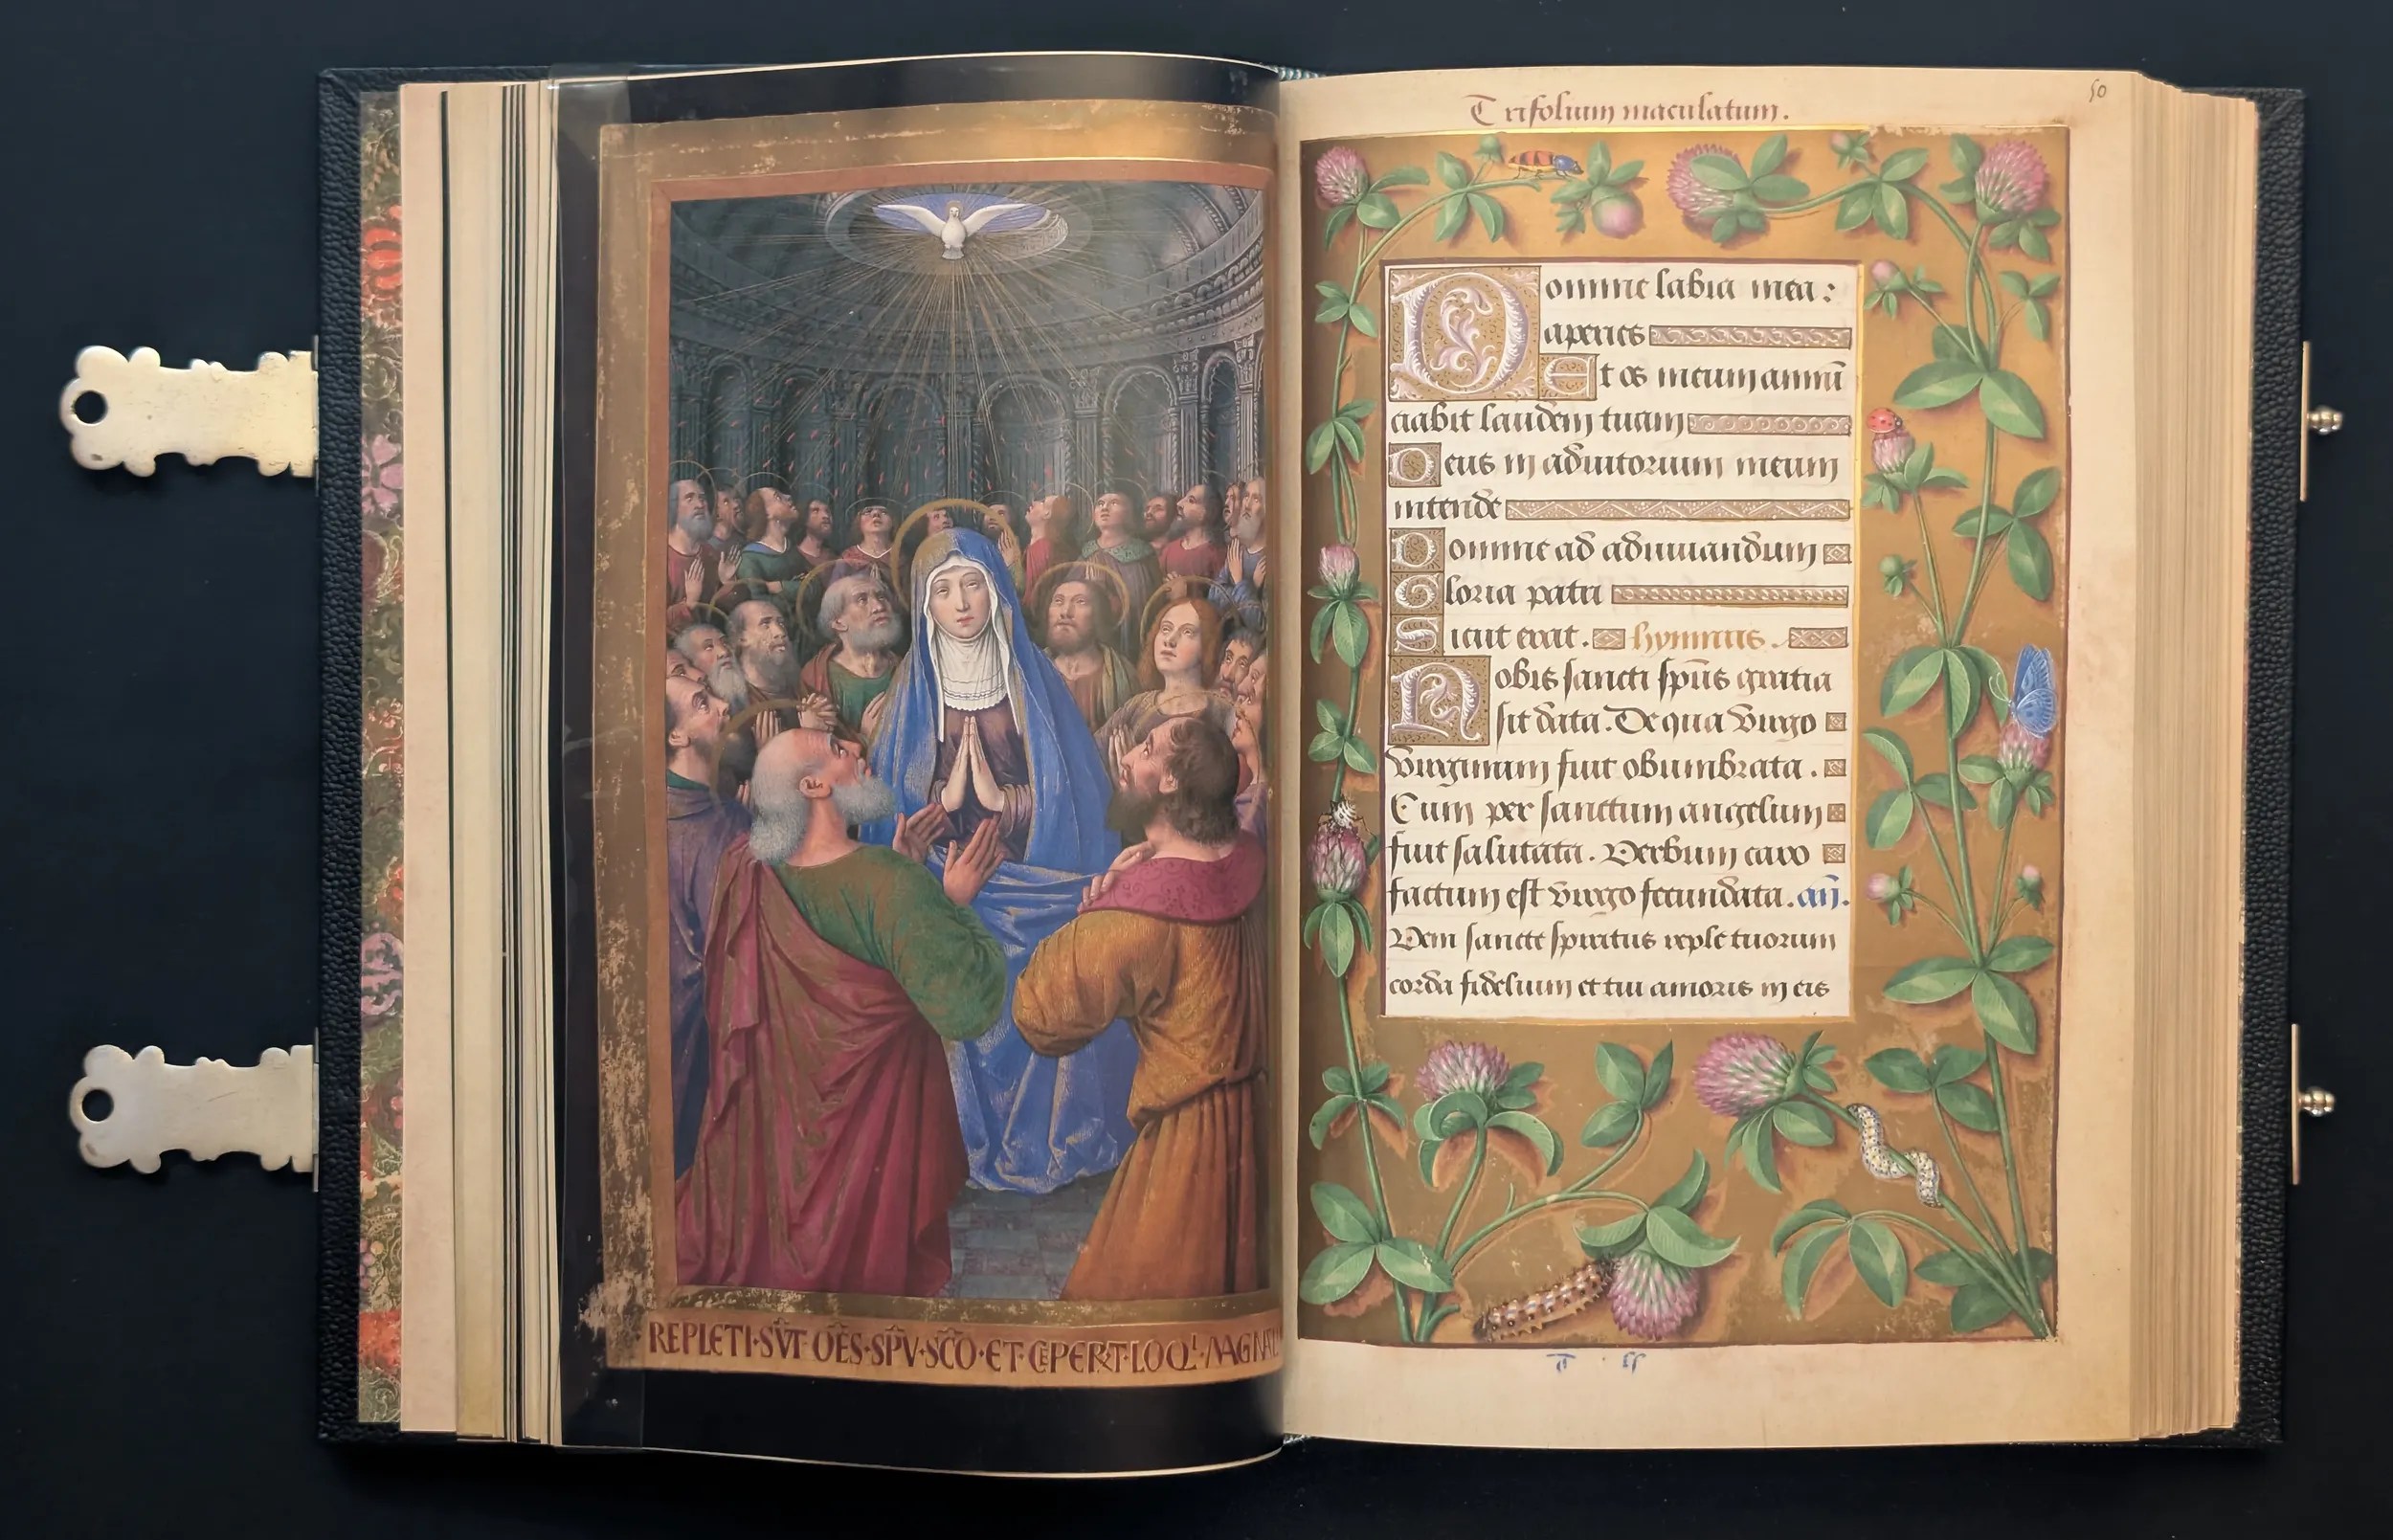 REPLETI·SV̄T·OĒS·SPV̄·SC̄O·ET·CEPERT·LOQI·MAGNAL
Trifolium maculatum.
50
Domine labia mea:
aperies
Et os meum annū
ciabit laudem tuam
Deus in adiutorium meum
intende
Domine ad adiuuandum
Gloria patri
Sicut erat. hymnus.
Nobis sancti sp̄us gratia
sit data. De qua virgo
virginum fuit obumbrata.
Cum per sanctum angelum
fuit salutata. Verbum caro
factum est virgo fecundata. an̄.
Veni sancte spiritus reple tuorum
corda fidelium et tui amoris in eis